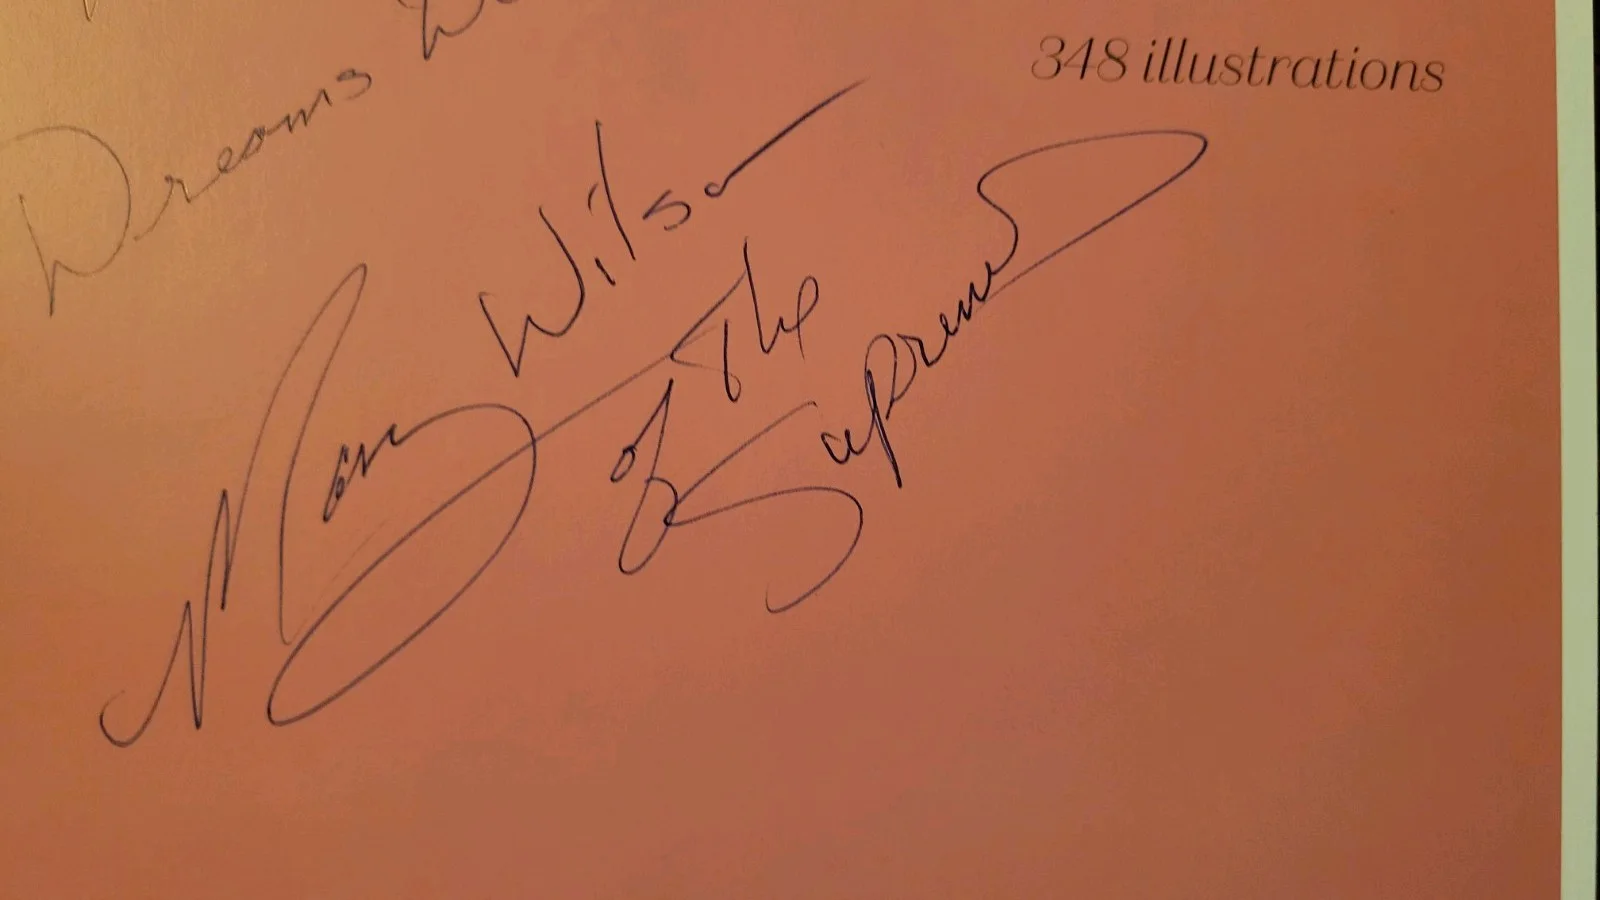 348 illustrations
Dreams
Mary Wilson
of The
Supremes